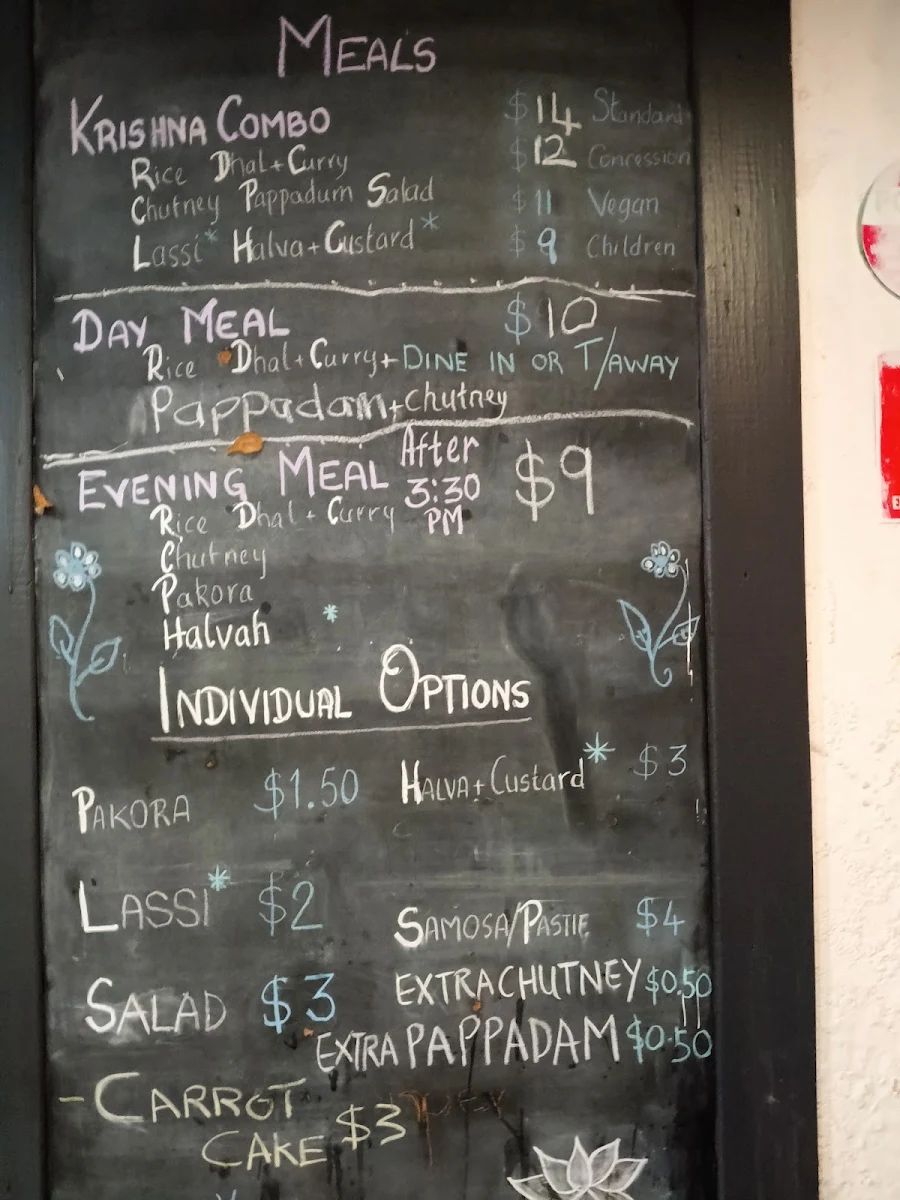 MEALS
KRISHNA COMBO $14 Standard
Rice Dhal + Curry $12 Concession
Chutney Pappadum Salad $11 Vegan
Lassi* Halva + Custard* $9 Children
DAY MEAL $10
Rice Dhal + Curry + DINE IN OR T/AWAY
Pappadam + chutney
EVENING MEAL After 3:30 PM $9
Rice Dhal + Curry
Chutney
Pakora
Halvah *
INDIVIDUAL OPTIONS
PAKORA $1.50 HALVA + Custard* $3
LASSI* $2 SAMOSA/PASTIE $4
SALAD $3 EXTRA CHUTNEY $0.50
EXTRA PAPPADAM $0.50
- CARROT
CAKE $3